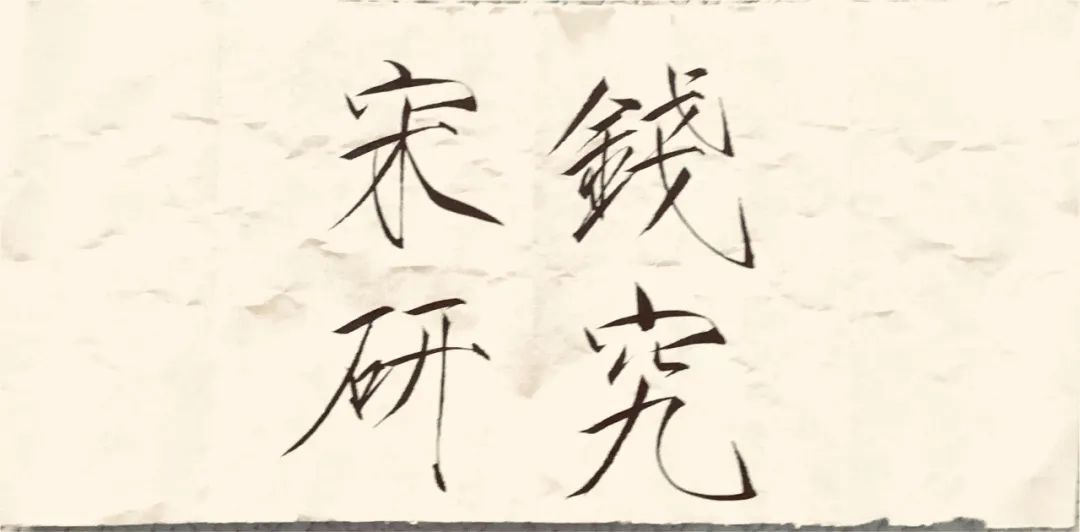 宋錢
研究